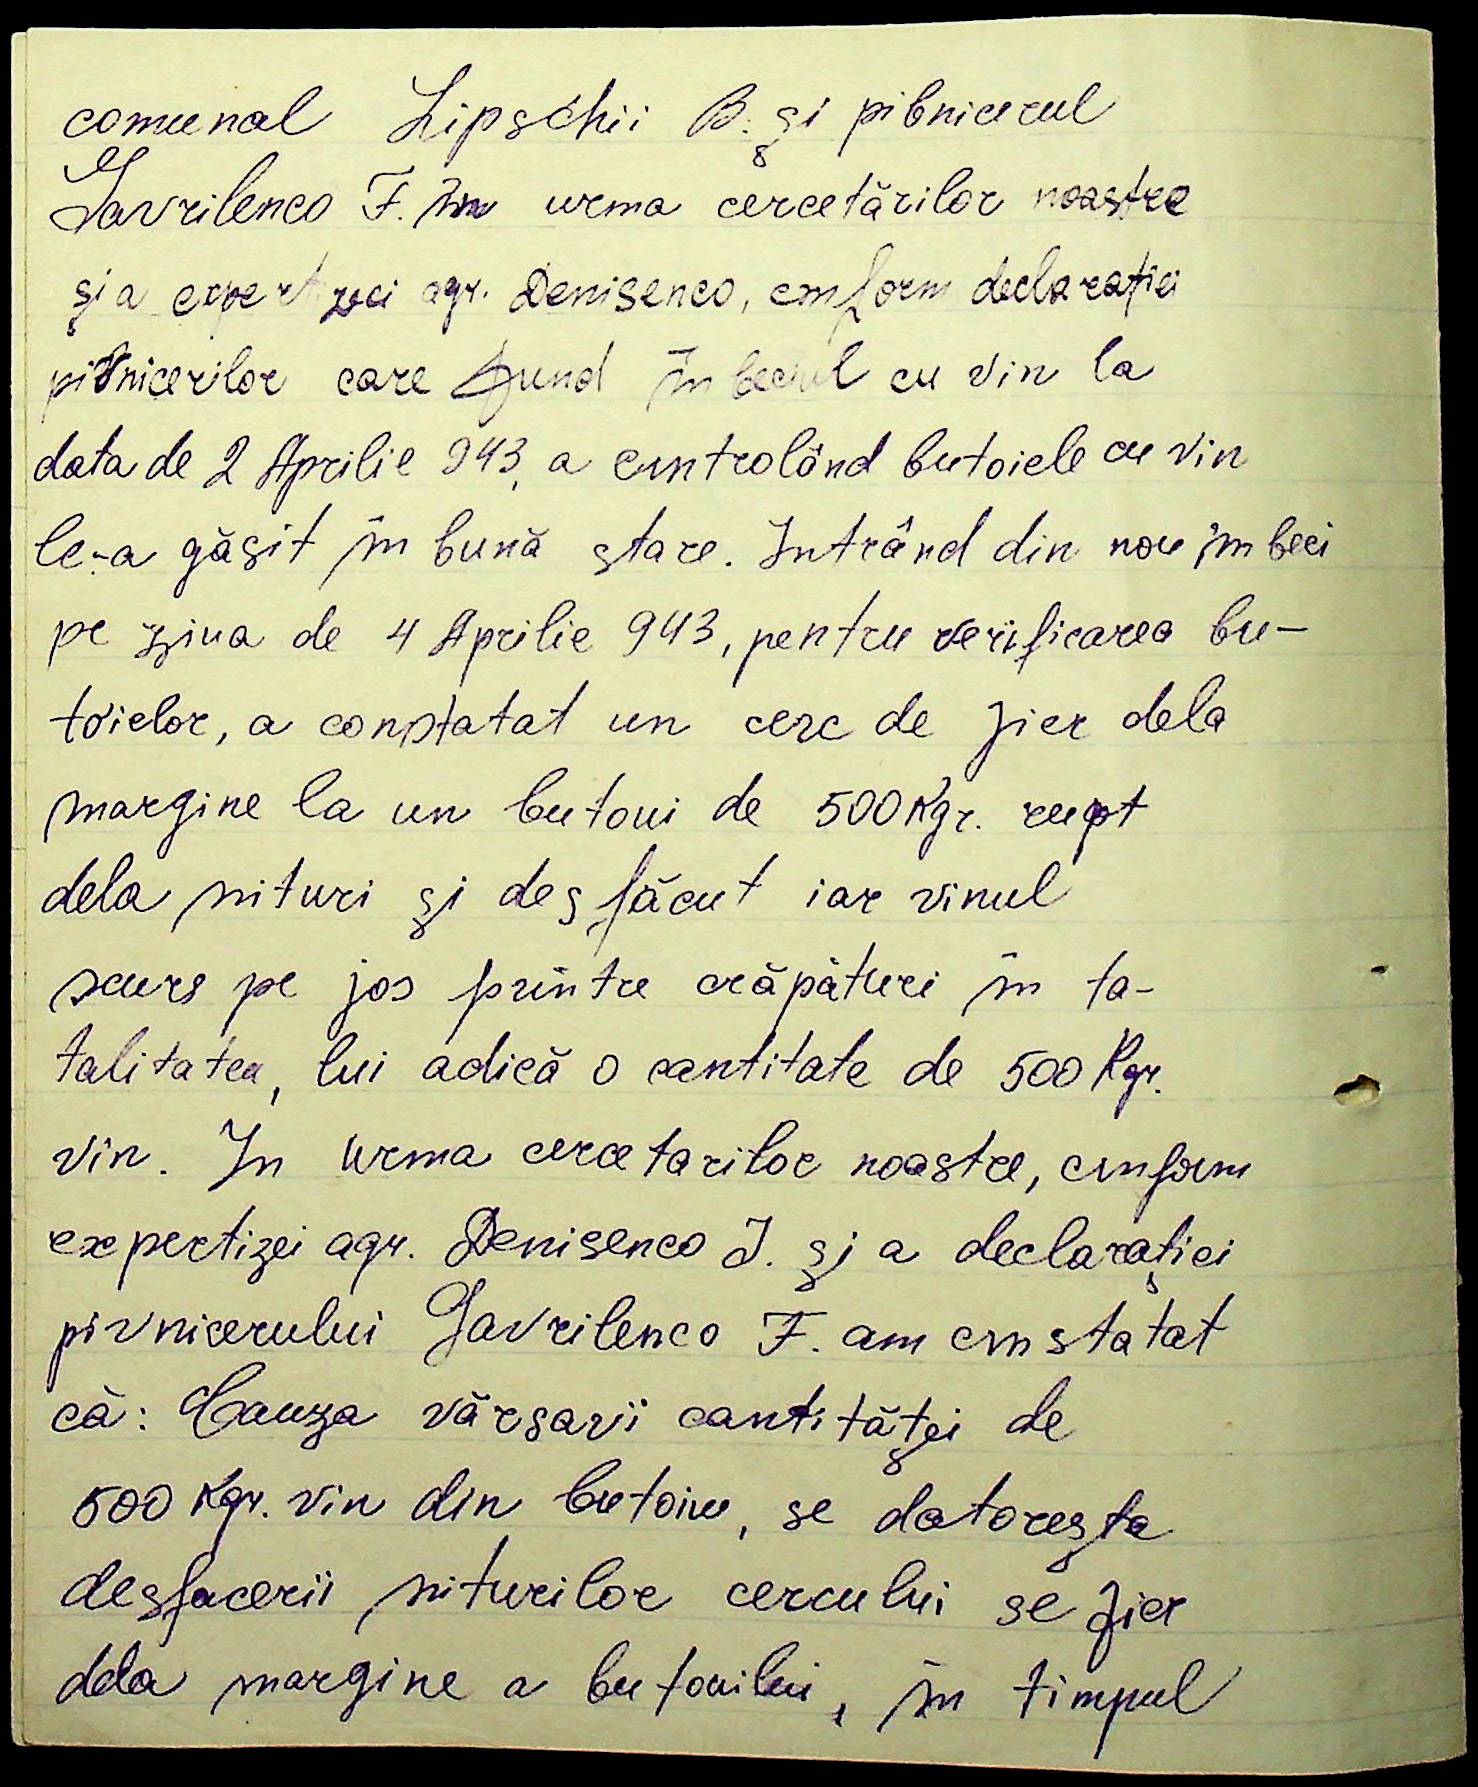 comunal Lipschii B. și pibnicerul
Gavrilenco F. În urma cercetărilor noastre
și a expertizei agr. Denisenco, conform declarației
pivnicerilor care fund în beciul cu vin la
data de 2 Aprilie 943, a controlând butoiele cu vin
le-a găsit în bună stare. Intrând din nou în beci
pe ziua de 4 Aprilie 943, pentru verificarea bu-
toielor, a constatat un cerc de fier dela
margine la un butoui de 500 Kgr. rupt
dela nituri și desfăcut iar vinul
scurs pe jos printre crăpături în ta-
talitatea, lui adică o cantitate de 500 Kgr.
vin. In urma cercetarilor noastre, conform
expertizei agr. Denisenco I. și a declarației
pivnicerului Gavrilenco F. am constatat
că: Cauza vărsarii cantităței de
500 Kgr. vin din butoiu, se datorește
desfacerii niturilor cercului se fier
dela margine a butouilui, în timpul